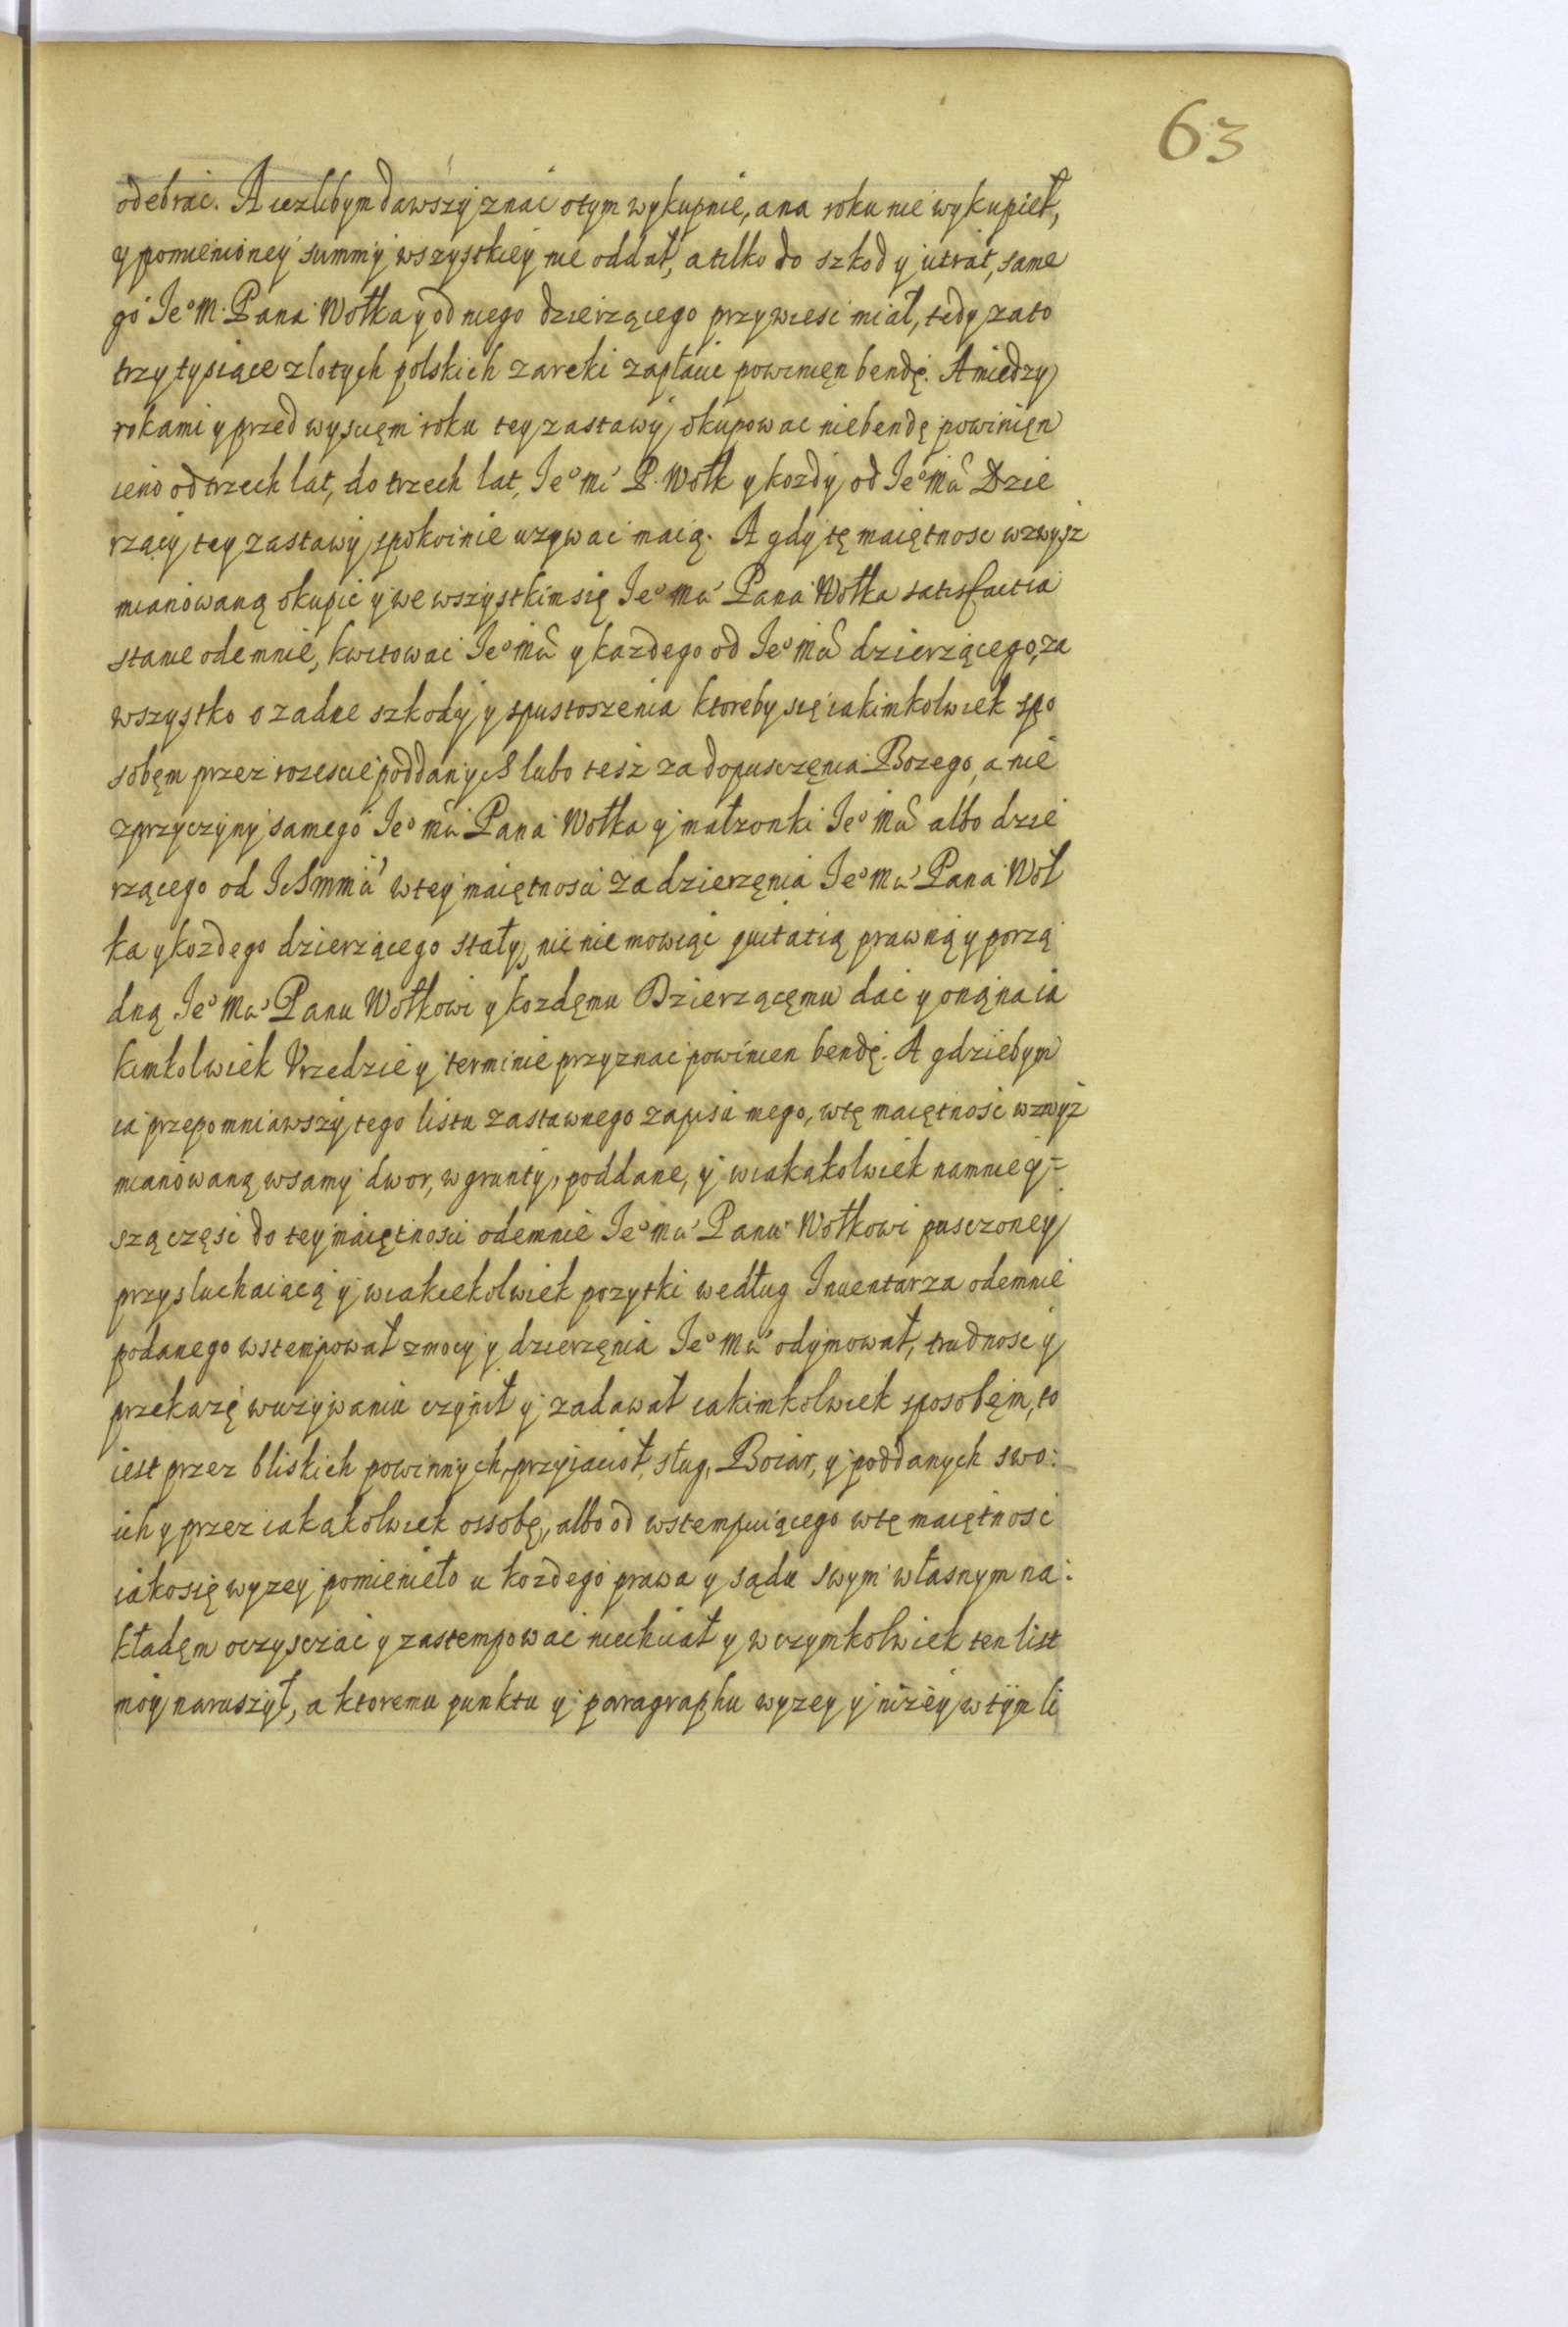 63
odebrać. A iezlibym dawszy znać otym wykupnie, ana roku nie wykupieł,
y pomienioney summy wszystkiey nie oddał, a tilko do szkod y utrat, same
go Ieo M. Pana Wołka y od niego dzierzącego przywiesc miał, tedy zato
trzy tysiące zlotych polskich zareki zapłacic powinięn bendę. A miedzy
rokami y przed wyscięm roku tey zastawy okupowac niebendę powinięn
ieno od trzech lat, do trzech lat, Ieo Mci P. Wołk y kozdy od Ieo Mci Dzie
rzący tey zastawy spokoinie uzywac maią. A gdy tę maiętnosc wzwysz
mianowaną okupie y we wszystkim się Ieo Mci Pana Wołka satisfactia
stanie odemnie, kwitowac Ieo Mci y kazdego od Ieo Mci dzierzącego, za
wszystko o zadne szkody y spustoszenia ktoreby się iakimkolwiek spo
sobęm przez rozescie poddanych lubo tesz za dopusczęnia Bozego, a nie
zprzyczyny samego Ieo Mci Pana Wołka y małzonki Ieo Mci albo dzie
rzącego od Ich Mmci wtey maiętnosci za dzierzęnia Ieo Mci Pana Woł
ka y kozdego dzierzącego stały, nic nie mowiąc quitatią prawną y porzą
dną Ieo Mci Panu Wołkowi y kozdęmu Dzierzącęmu dac y onąna ia
kimkolwiek Vrzedzie y terminie przyznac powinien bendę. A gdziebym
ia przepomniawszy tego listu zastawnego zapisu mego, wtę maiętnosc wzwyż
mianowaną wsamy dwor, w grunty, poddane, y wiakąkolwiek namniey=
szą częsc do tey maiętnosci odemnie Ieo Mci Panu Wołkowi pusczoney
przysluchaiącą y wiakiekolwiek pozytki według Inuentarza odemnie
podanego wstempował zmocy y dzierzęnia Ieo Mci odymował, trudnosc y
przekazę wuzywaniu czynił y zadawał iakimkolwiek sposobęm, to
iest przez bliskich powinnych, przyiacioł, sług, Boiar, y poddanych swo:
ich y przez iakąkolwiek ossobę, albo od wstempuiącego wtę maiętnosc
iakosię wyzey pomienieło u kozdego prawa y sądu swym własnym na:
kładęm oczysczac y zastempowac niechciał y wczymkolwiek ten list
moy naruszył, a ktoremu punktu y paragraphu wyzey y niżey wtym li